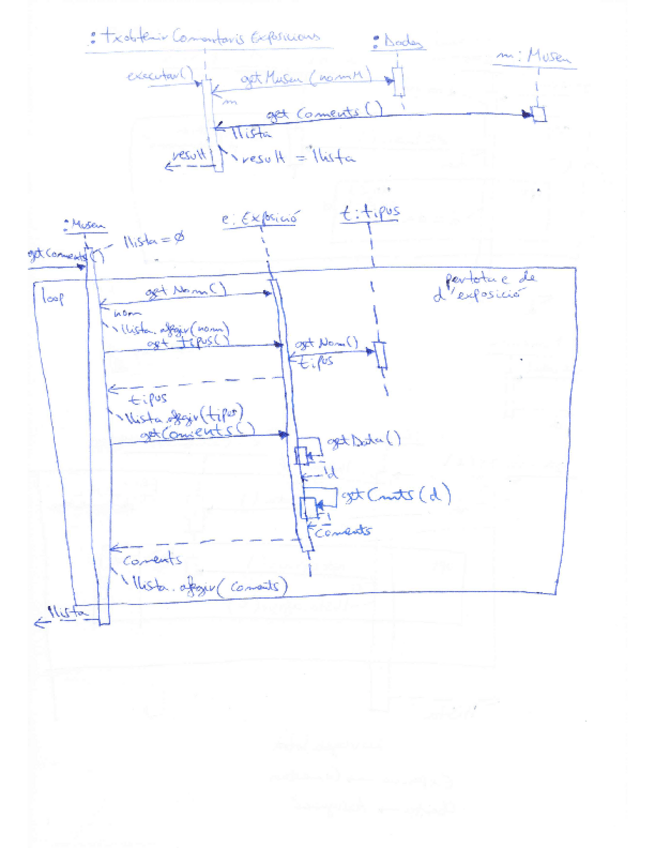 : txobtenir Comentaris Exposicions
: Dades
m : Museu
executar()
getMuseu (nomM)
m
get Coments ()
llista
result
result = llista
: Museu
e : Exposició
t : tipus
getComents()
llista = ∅
loop
per tot e de
d'exposició
get Nom ()
nom
llista.afegir(nom)
get tipus()
get Nom()
tipus
tipus
llista.afegir(tipus)
getComents()
getData()
d
getCmts (d)
coments
coments
llista.afegir(coments)
llista